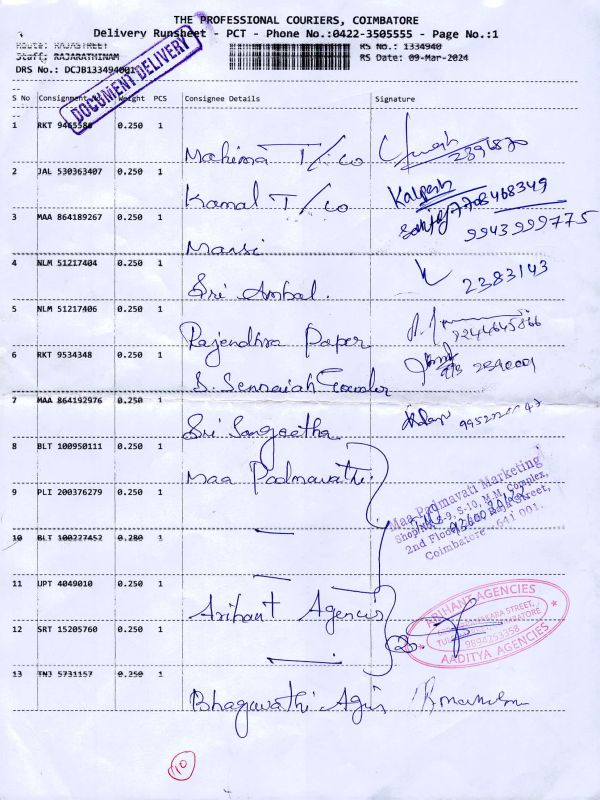 THE PROFESSIONAL COURIERS, COIMBATORE
Delivery Runsheet - PCT - Phone No.:0422-3505555 - Page No.:1
Route: RAJASTREET
RS No.: 1334940
Staff: RAJARATHINAM
RS Date: 09-Mar-2024
DRS No.: DCJB133494001
DOCUMENT DELIVERY
S No Consignment Weight PCS Consignee Details Signature
1 RKT 9465580 0.250 1 Mahima T/co 2396870
2 JAL 530363407 0.250 1 Kamal T/co Kalpesh
7708468349
3 MAA 864189267 0.250 1 Mansi 9943999775
4 NLM 51217404 0.250 1 Sri Ambal. 2383143
5 NLM 51217406 0.250 1 Rajendhra Paper
6 RKT 9534348 0.250 1 S. Sennaiah Gounder
7 MAA 864192976 0.250 1 Sri Sangeetha
8 BLT 100950111 0.250 1 Maa Padmavathi
Maa Padmavati Marketing
S-9, S-10, M.M. Complex,
2nd Floor, Raja Street,
Coimbatore - 641 001.
9 PLI 200376279 0.250 1 —
10 BLT 100227452 0.280 1 —
11 UPT 4049010 0.250 1 Arihant Agencies
ARIHANT AGENCIES
AADITYA AGENCIES
12 SRT 15205760 0.250 1 —
13 TNJ 5731157 0.250 1 Bhagavathi Agis
10